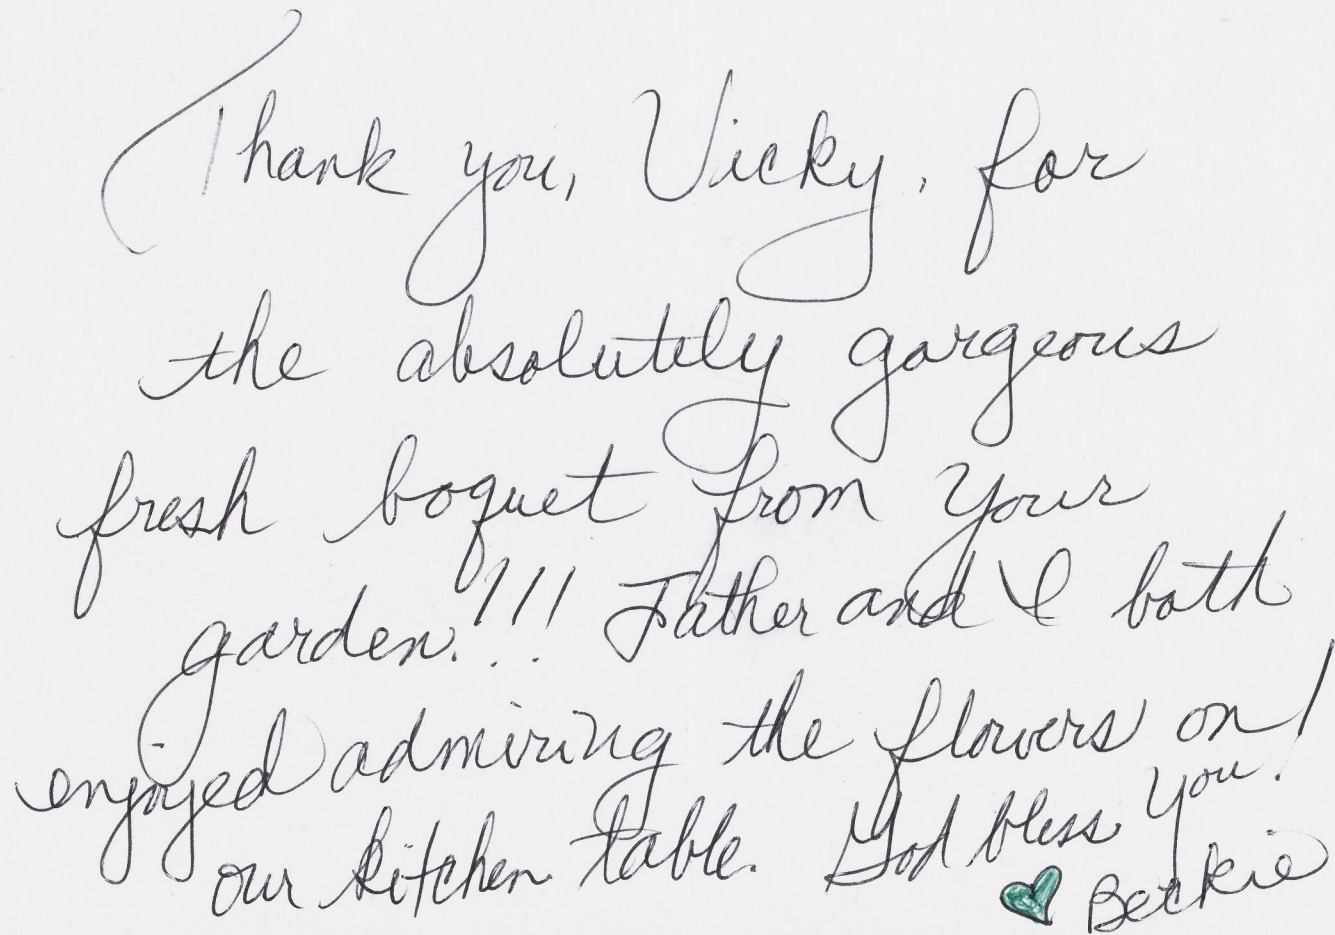 Thank you, Vicky, for
the absolutely gorgeous
fresh boquet from your
garden!!! Father and I both
enjoyed admiring the flowers on
our kitchen table. God bless you!
♥ Beckie